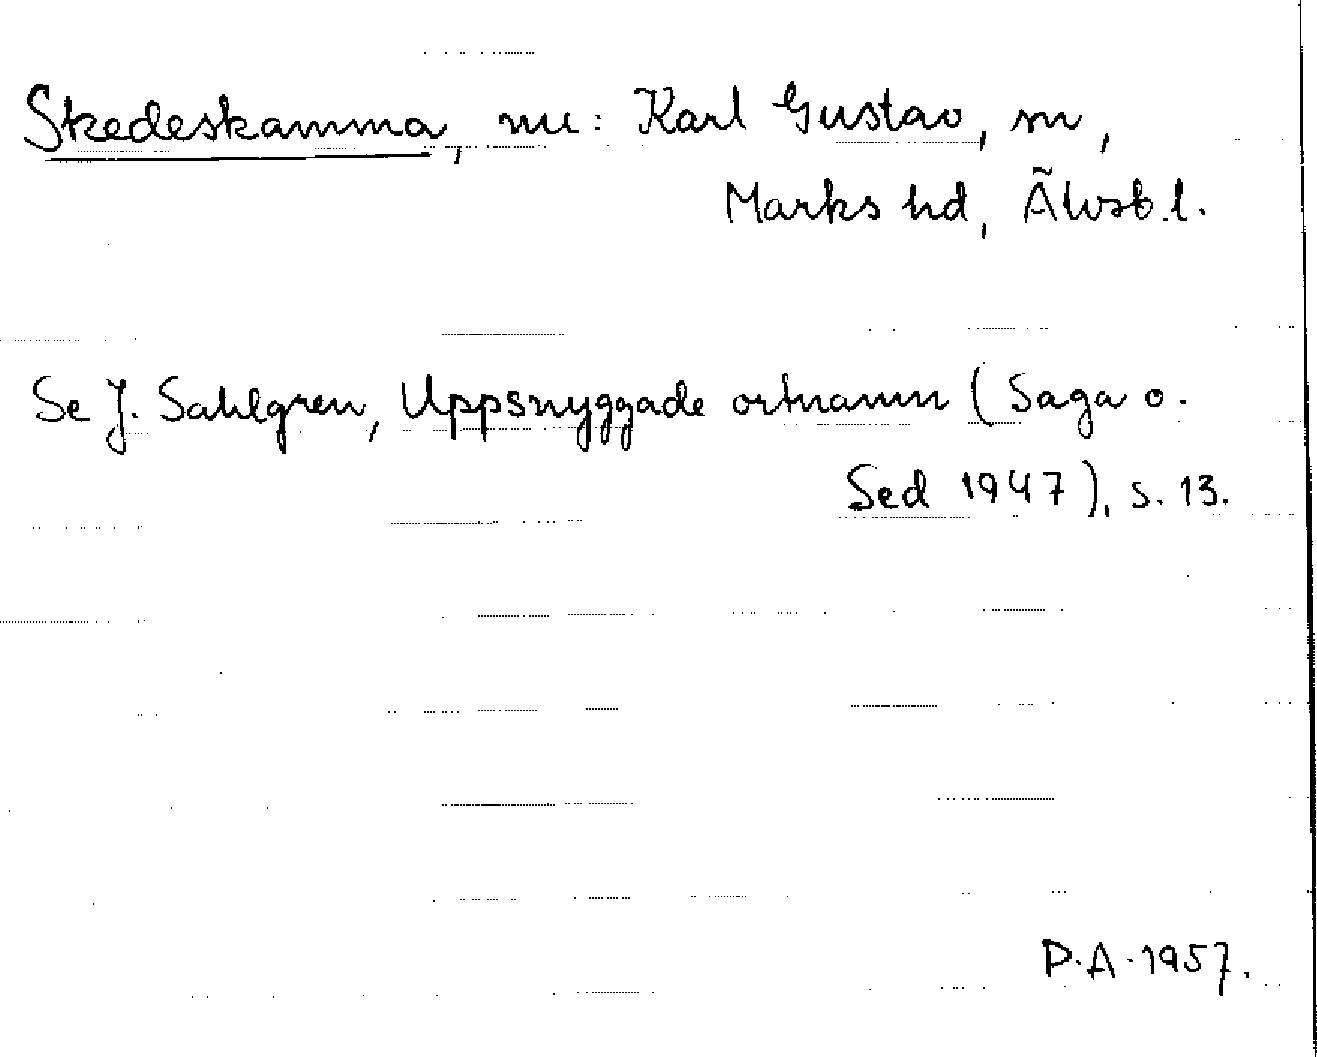 Skedeskamma, nu: Karl Gustav, sn,
Marks hd, Älvsb.l.
Se J. Sahlgren, Uppsnyggade ortnamn (Saga o.
Sed 1947), s. 13.
P.A. 1957.